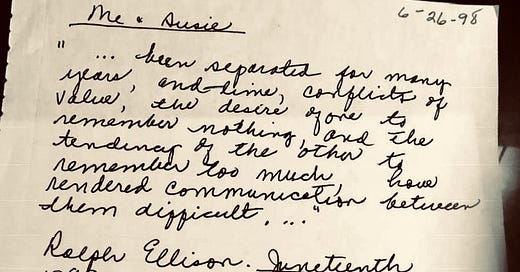 Me & Susie
6-26-98
"... been separated for many
years, and time, conflicts of
value, the desire of one to
remember nothing, and the
tendency of the other to
remember too much, have
rendered communication between
them difficult, ..."
Ralph Ellison. Juneteenth